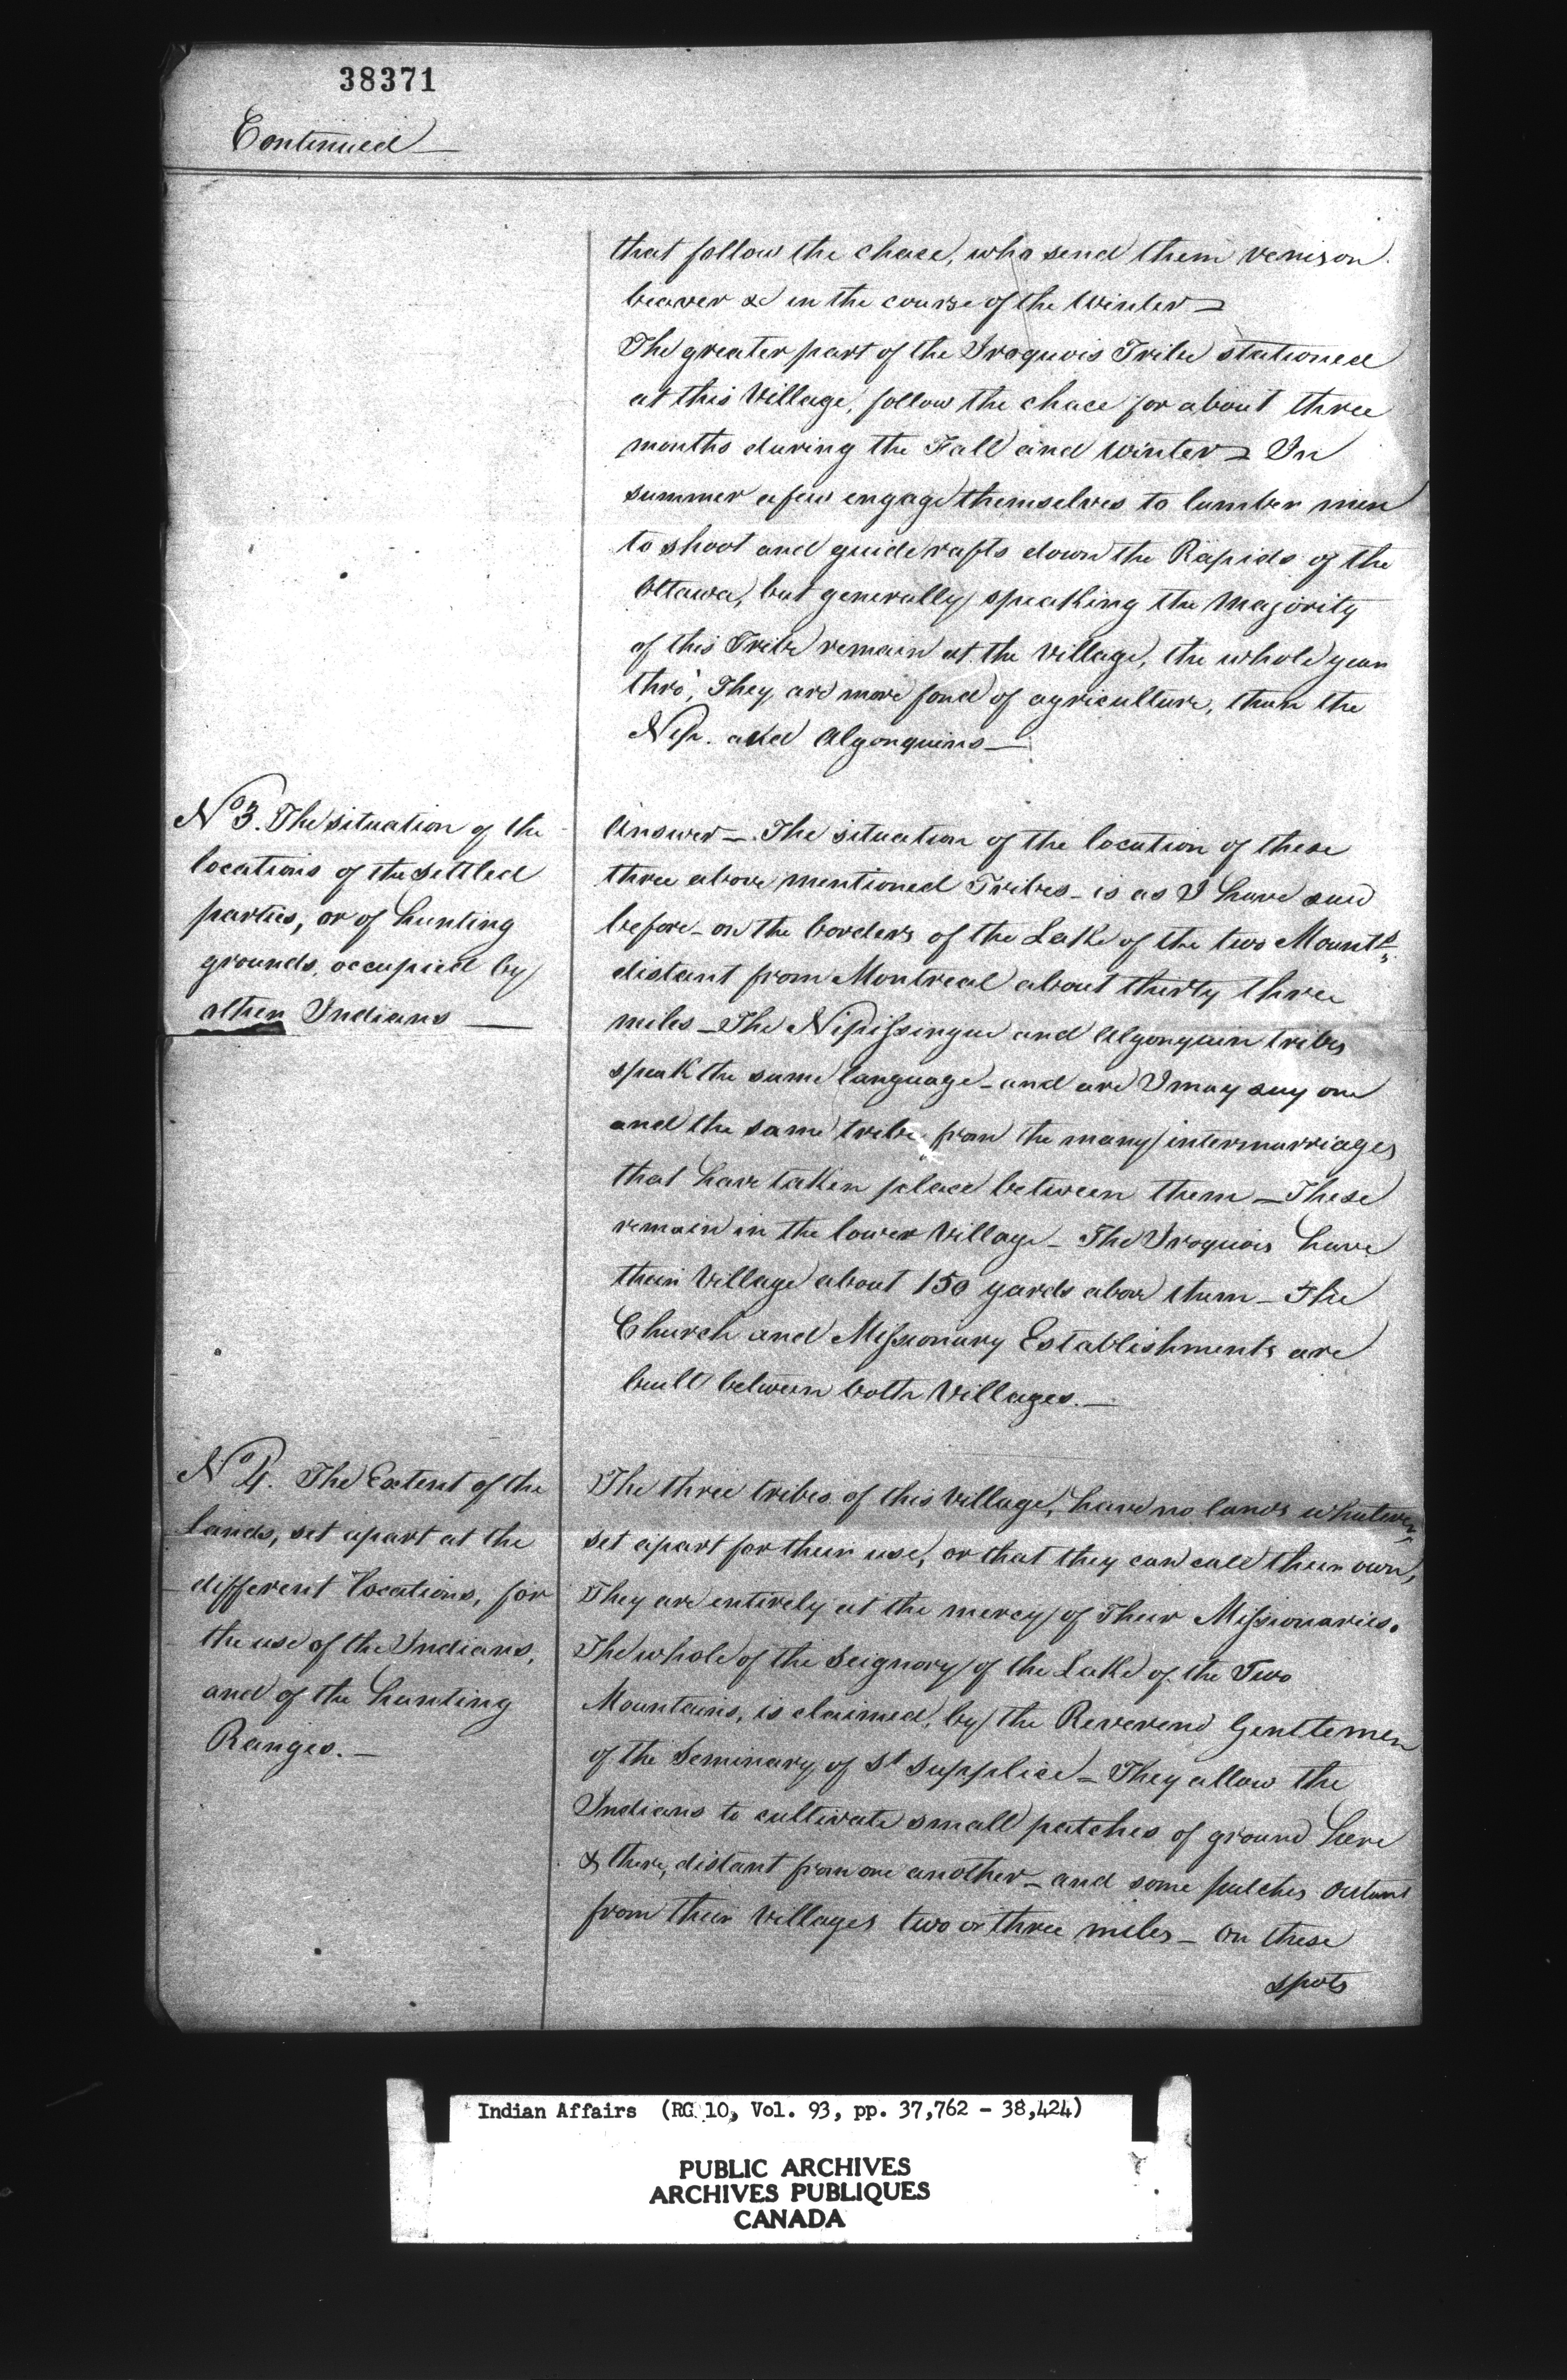 38371
Continued —
that follow the chace, who send them venison
beaver &c in the course of the Winter —
The greater part of the Iroquois Tribe stationed
at this Village, follow the chace for about three
months during the Fall and Winter — In
summer a few engage themselves to lumber men
to shoot and guide rafts down the Rapids of the
Ottawa, but generally speaking the majority
of this Tribe remain at the Village, the whole year
thro', They are more fond of agriculture, than the
Nip. and Algonquins —
No 3. The situation of the
locations of the settled
parties, or of hunting
grounds, occupied by
other Indians —
Answer — The situation of the location of these
three above mentioned Tribes — is as I have said
before — on the borders of the Lake of the two Mounts,
distant from Montreal about thirty three
miles — The Nipissingue and Algonquin tribes
speak the same language — and are I may say one
and the same tribe, from the many intermarriages
that have taken place between them — These
remain in the lower Village — The Iroquois have
their Village about 150 yards above them — The
Church and Missionary Establishments are
built between both Villages. —
No 4. The Extent of the
lands, set apart at the
different locations, for
the use of the Indians,
and of the hunting
Ranges. —
The three tribes of this Village, have no lands whatever,
set apart for their use, or that they can call their own,
They are entirely at the mercy of Their Missionaries.
The whole of the Seignory of the Lake of the Two
Mountains, is claimed, by the Reverend Gentlemen
of the Seminary of St Supplice — They allow the
Indians to cultivate small patches of ground here
& there, distant from one another — and some patches distant
from their Villages two or three miles — On these
spots
Indian Affairs (RG 10, Vol. 93, pp. 37,762 - 38,424)
PUBLIC ARCHIVES
ARCHIVES PUBLIQUES
CANADA